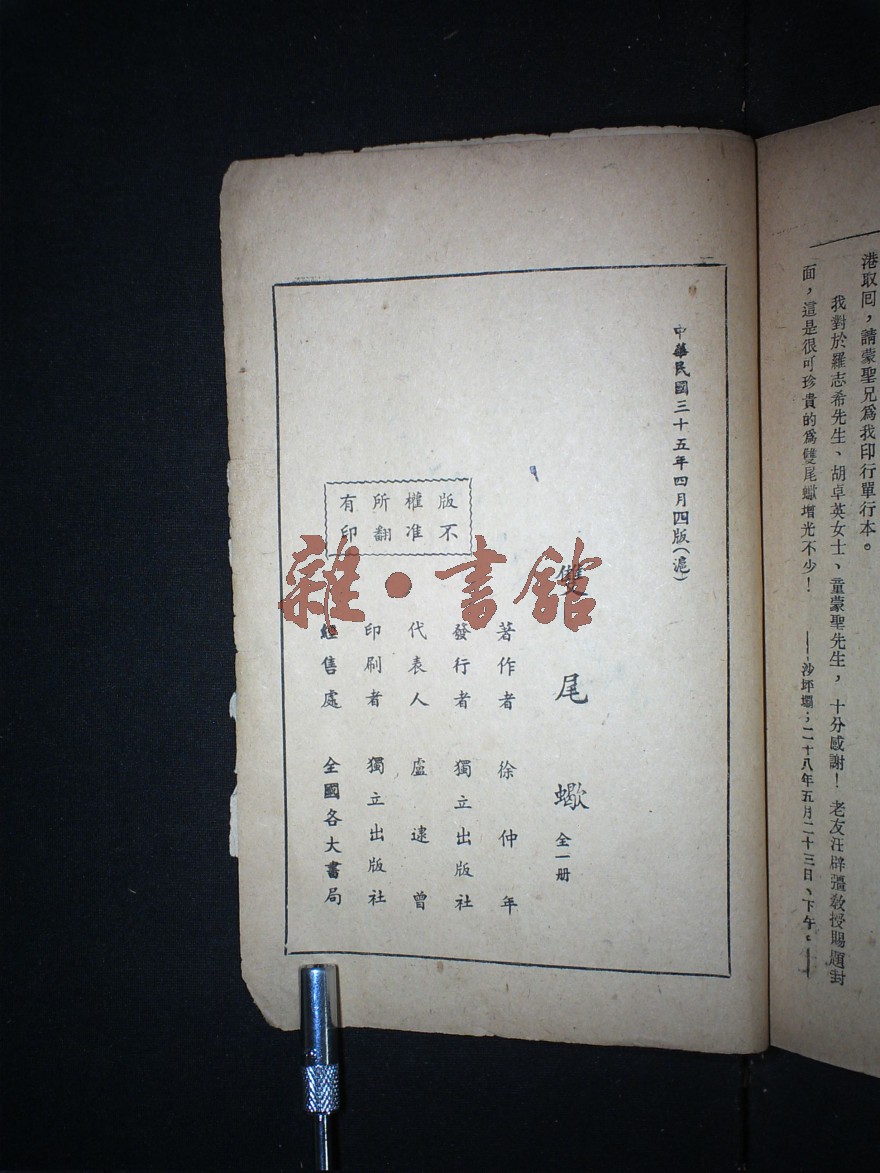 港取囘，請蒙聖兄爲我印行單行本。
我對於羅志希先生、胡卓英女士、童蒙聖先生，十分感謝！老友汪辟疆敎授賜題封
面，這是很可珍貴的爲雙尾蠍增光不少！——沙坪壩；二十八年五月二十三日、下午。——
中華民國三十五年四月四版(滬)
雙尾蠍 全一册
著作者 徐仲年
發行者 獨立出版社
代表人 盧逮曾
印刷者 獨立出版社
經售處 全國各大書局
版權所有
不准翻印
雜·書館